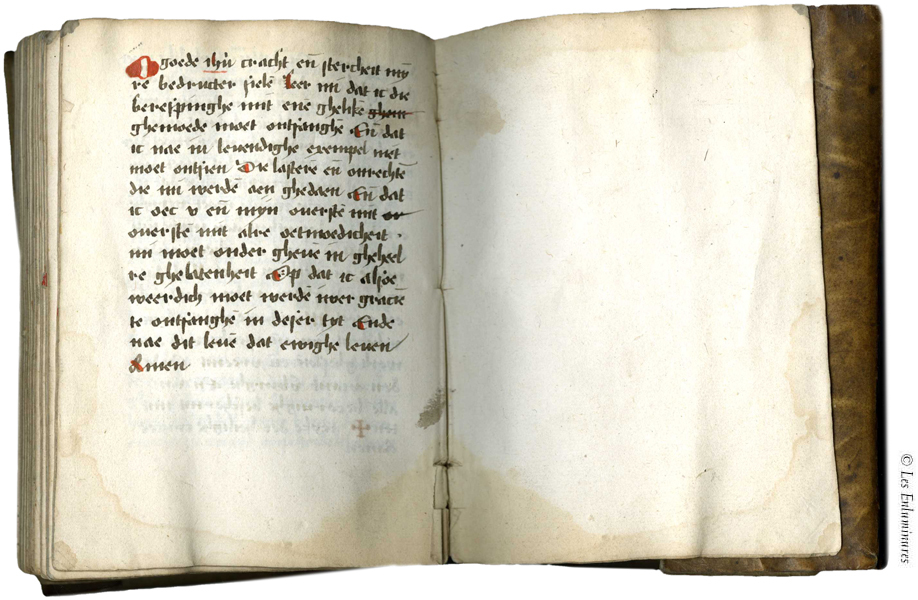 O goede ihũ cracht eñ stercheit mÿ
re bedructer sielē Leer mi dat ic die
berespinghe mit ene ghelikē ghem
ghemoede moet ontfanghē Eñ dat
ic nae m levendighe exempel niet
moet ontsien Die lasterē eñ onrechtē
die mi werdē aen ghedaen Eñ dat
ic oec v eñ mijn ouerstē mit or
ouerstē mit alre oetmoedicheit
mi moet onder gheuē in gheheel
re ghelatenheit Op dat ic alsoe
weerdich moet werdē uwer graciē
te ontfanghē in deser tyt Ende
nae dit leuē dat ewighe leven
Amen
© Les Enluminures